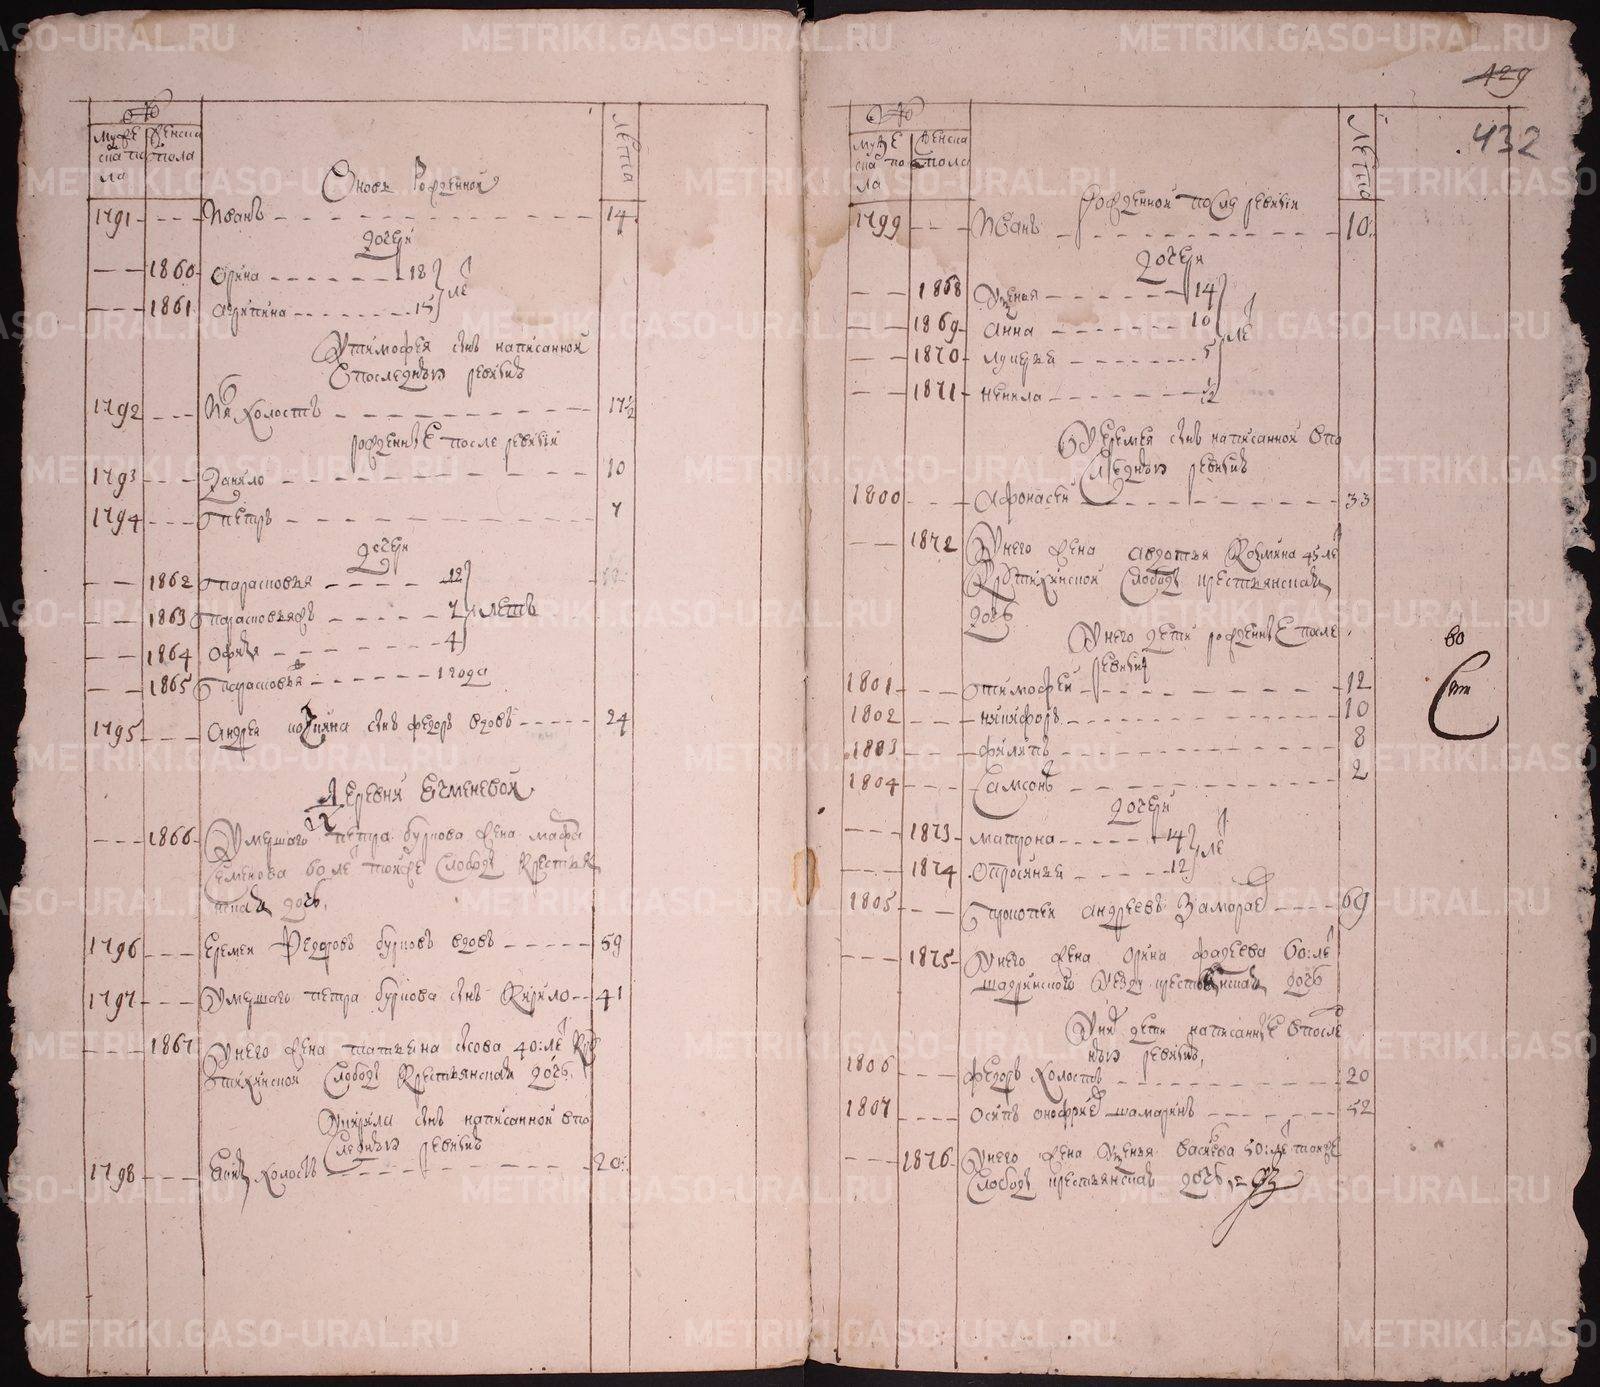 №
Муже
ска по
ла
Женска
пола
лета
Сновъ Рожденной
1791 Иванъ 14
Дочери
1860 Орина 18
1861 Агрипина 15 ле
У Тимофея снъ написанной
в последнъю ревизию
1792 холостъ 17 1/2
рожденные после ревизии
1793 Данило 10
1794 Петръ 7
Дочери
1862 Парасковья 12
1863 Парасковья ж 7 летъ
1864 Офимя 4
1865 Парасковья 1 года
1795 Андреи снъ Федоръ вдовъ 24
Деревни Ячменевой
1866 Умершаго Петра буркова жена Марфа
Семенова 60 ле тоиже Слободы Крестьян
ская дочь
1796 Еремеи Федоровъ бурковъ вдовъ 59
1797 Умершаго петра буркова снъ Кирило 41
1867 У него жена татьяна 40: ле
Слободы Крестьянская дочь
У Кирила снъ написанной впо
следнъю ревизию
1798 холостъ 20
№
Муже
ска по
ла
Женска
пола
лета
429
432
Рожденной после ревизии
1799 Иванъ 10
Дочери
1868 14
1869 Анна 10 ле
1870 Лукерья 5
1871 Ненила 1/2
У Еремея снъ написанной впо
следнъю ревизию
1800 Афонасеи 33
1872 У него жена авдотья Козмина 45 ле
Слободы крестьянская
дочь
У него дети рожденные после
ревизии
1801 Тимофеи 12
1802 Никифоръ 10
1803 Филипъ 8
1804 Самсонъ 2
дочери
1873 Матрона 14 ле
1874 12
1805 Прокопеи андреевъ Замараев 69
1875 У него жена Орина фадеева 60: ле
шадринского уезду крестьянская дочь
У них дети написанные впосле
днъю ревизию
1806 Федоръ холостъ 20
1807 Осипъ онофриев шамаринъ 52
1876 У него жена 50: ле тоиже
Слободы крестьянская дочь